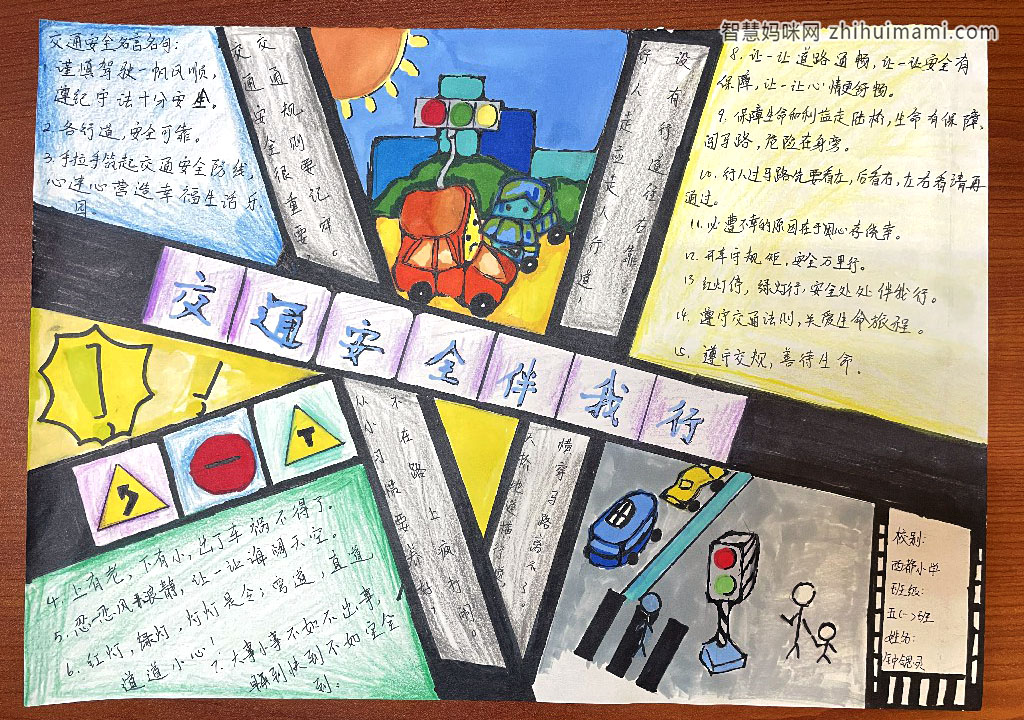 智慧妈咪网 zhihuimami.com
交通安全名言名句:
1. 谨慎驾驶一帆风顺,
遵纪守法十分安全。
2. 各行道,安全可靠。
3. 手拉手筑起交通安全防线,
心连心营造幸福生活乐
园。
交通规则要记牢。
交通安全很重要
设有行道往右靠。
行人走应走人行道,
8. 让一让道路通畅,让一让安全有
保障,让一让心情更舒畅。
9. 保障生命和利益走陆桥,生命有保障,
闯马路,危险在身旁。
10. 行人过马路先要看左,后看右,左右看清再
通过。
11. 必遭不幸的原因在于
12. 开车守规矩,安全万里行。
13 红灯停,绿灯行,安全处处伴我行。
14. 遵守交通法则,关爱生命旅程。
15. 遵守交规,善待生命。
交通安全伴我行
不在路上疯打闹。
从小习惯要养好,
横穿马路
4. 上有老,下有小,出了车祸不得了。
5. 忍一忍风平浪静,让一让海阔天空。
6. 红灯,绿灯,灯灯是令;弯道,直道
道道小心!
7. 大事小事不如不出事,
早到快到不如安全
到。
校别:
西 小学
班级:
五(一)班
姓名: